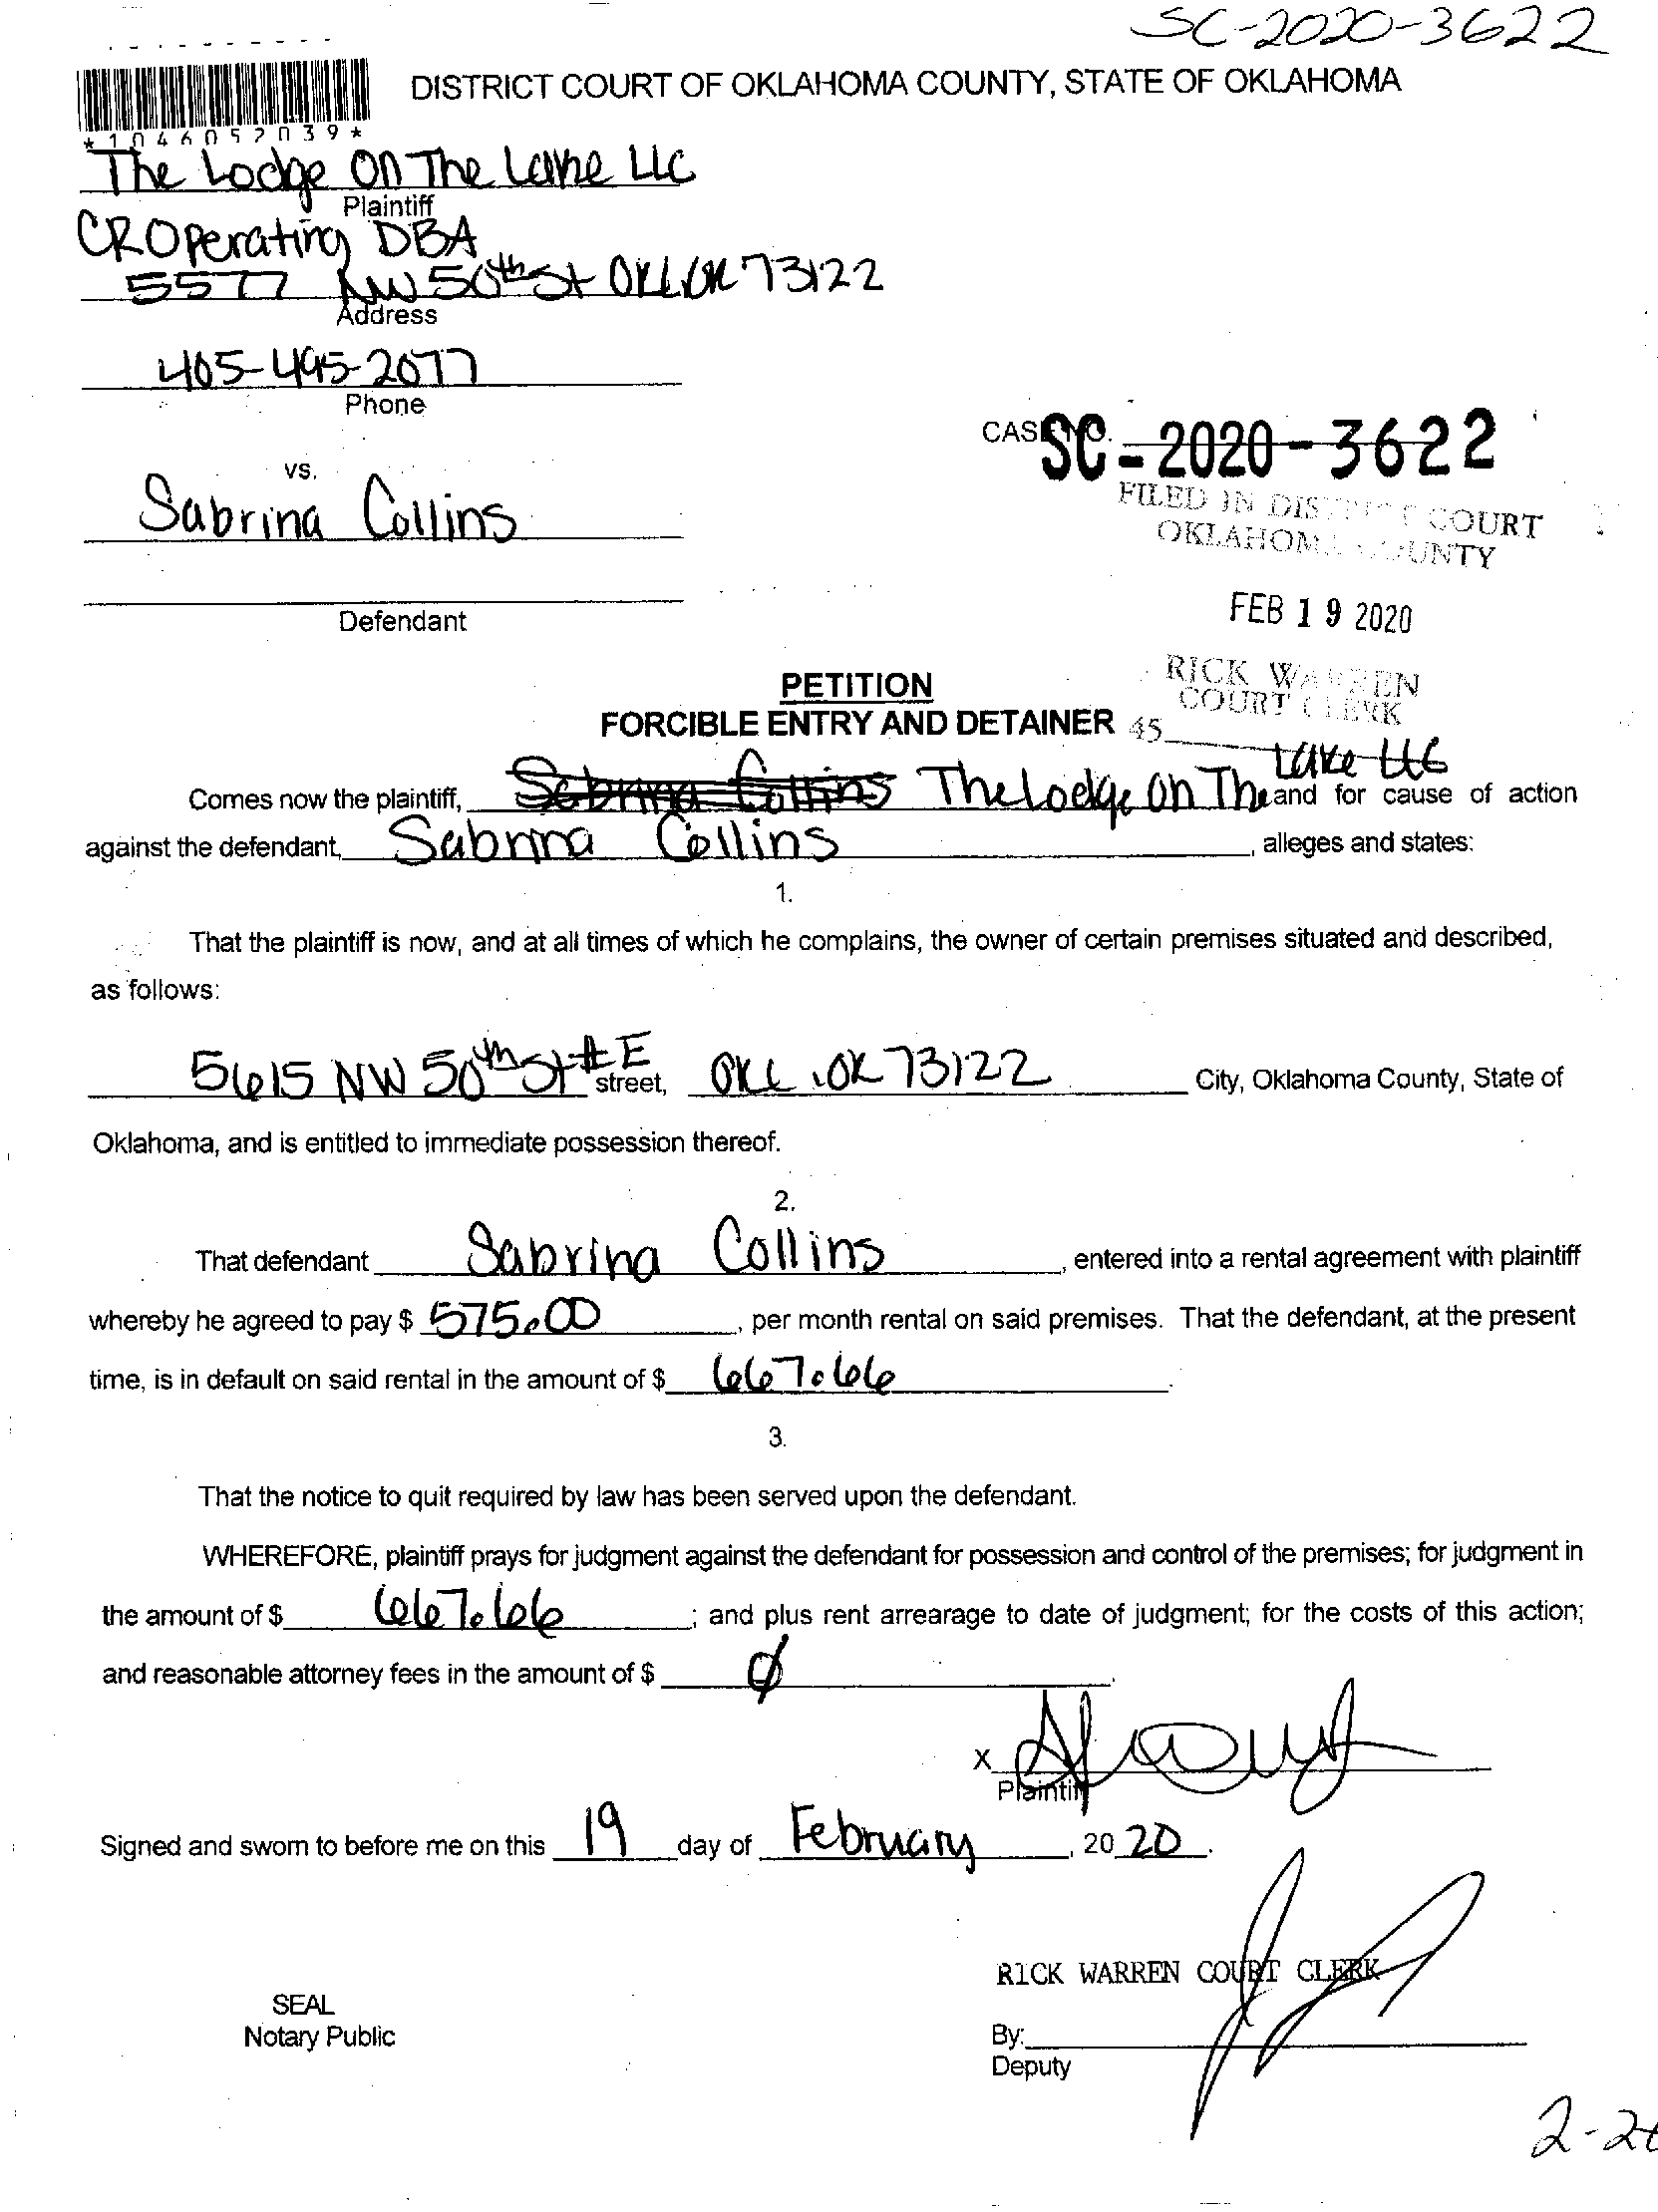 SC-2020-3622
DISTRICT COURT OF OKLAHOMA COUNTY, STATE OF OKLAHOMA
*1046052039*
The Lodge On The Lake LLC
Plaintiff
CR Operating DBA
5577 NW 50th St OKC OK 73122
Address
405-495-2077
Phone
CASE NO. SC-2020-3622
vs.
FILED IN DISTRICT COURT
Sabrina Collins
OKLAHOMA COUNTY
FEB 19 2020
Defendant
RICK WARREN
PETITION
COURT CLERK
FORCIBLE ENTRY AND DETAINER 45
Lake LLC
Comes now the plaintiff, Sabrina Collins The Lodge On The and for cause of action
against the defendant, Sabrina Collins, alleges and states:
1.
That the plaintiff is now, and at all times of which he complains, the owner of certain premises situated and described,
as follows:
5615 NW 50th St #E street, OKC, OK 73122 City, Oklahoma County, State of
Oklahoma, and is entitled to immediate possession thereof.
2.
That defendant Sabrina Collins, entered into a rental agreement with plaintiff
whereby he agreed to pay $ 575.00, per month rental on said premises. That the defendant, at the present
time, is in default on said rental in the amount of $ 667.66.
3.
That the notice to quit required by law has been served upon the defendant.
WHEREFORE, plaintiff prays for judgment against the defendant for possession and control of the premises; for judgment in
the amount of $ 667.66; and plus rent arrearage to date of judgment; for the costs of this action;
and reasonable attorney fees in the amount of $ Ø.
X
Plaintiff
Signed and sworn to before me on this 19 day of February, 2020.
RICK WARREN COURT CLERK
SEAL
Notary Public
By:
Deputy